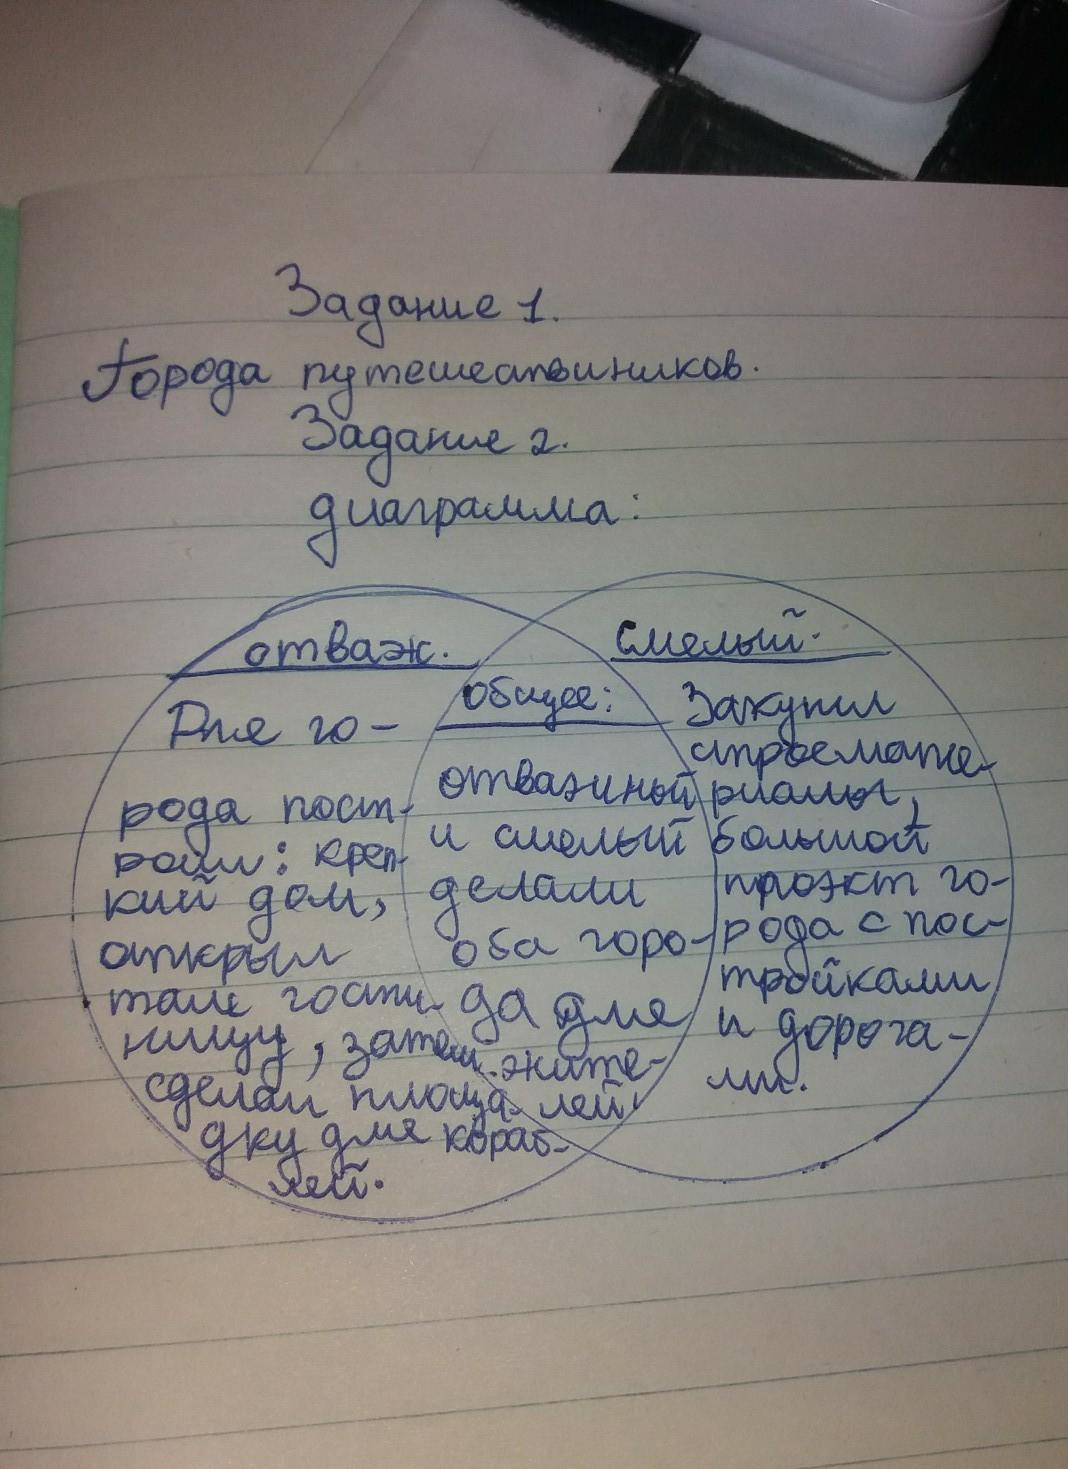 Задание 1.
Города путешествиников.
Задание 2.
диаграмма:
отваж.
Для го-
рода пост-
роил: креп-
кий дом,
открыл
там гости-
ницу, затем
сделал площа-
дку для кораб-
лей.
общее:
отважный
и смелый
делали
оба горо-
да для
жите-
лей.
смелый.
Закупил
строемате-
риалы,
большой
проэкт го-
рода с пос-
тройками
и дорога-
ми.